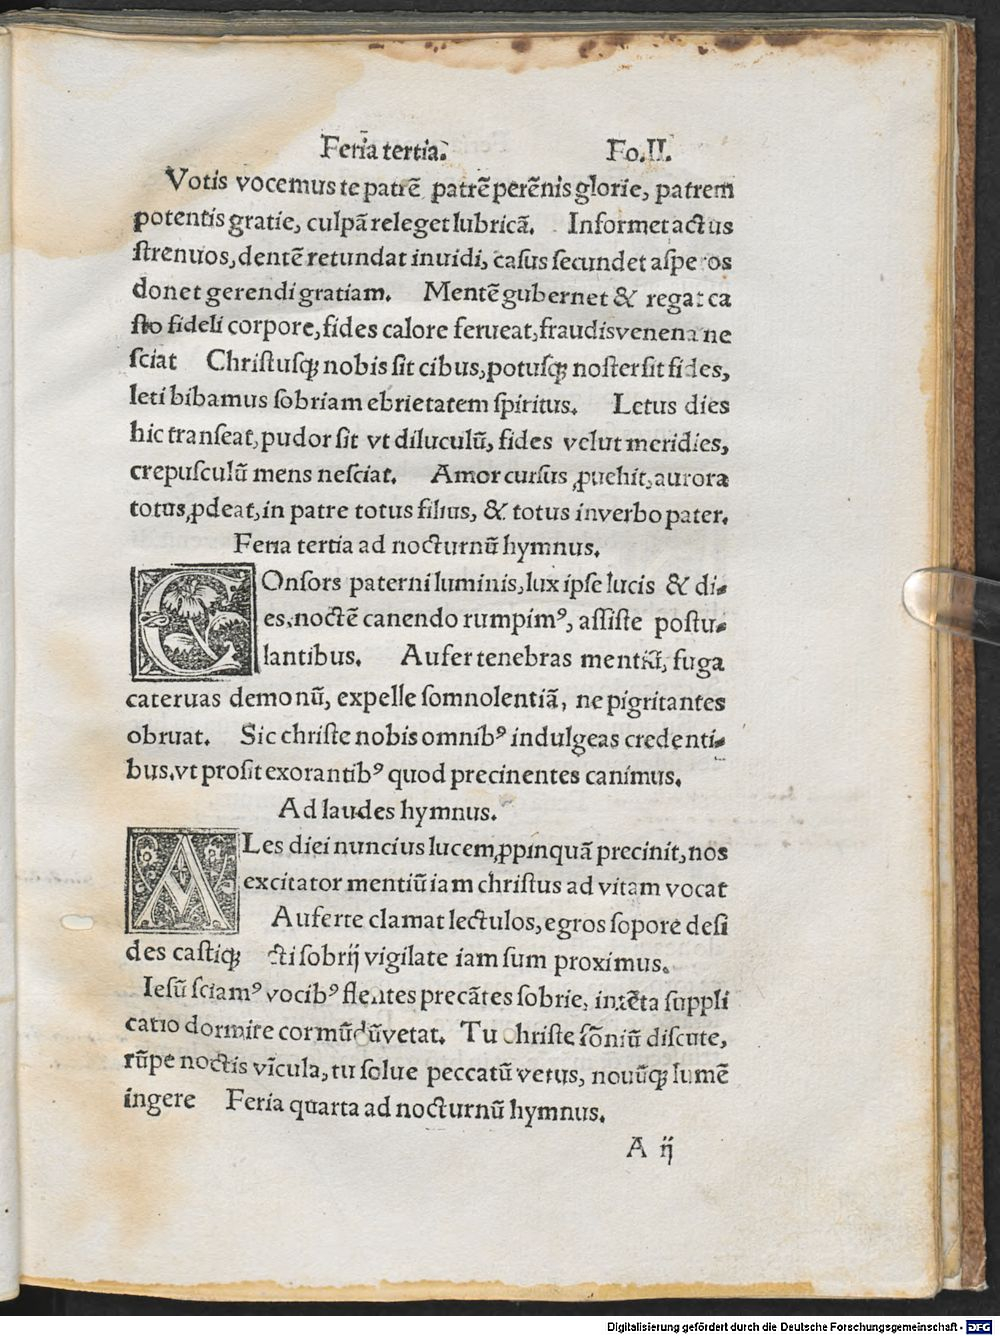 Feria tertia. Fo.II.
Votis vocemus te patrē patrē perēnis glorie, patrem
potentis gratie, culpā releget lubricā. Informet actus
ſtrenuos, dentē retundat inuidi, caſus ſecundet aſperos
donet gerendi gratiam. Mentē gubernet & regat ca
ſto fideli corpore, fides calore ferueat, fraudis venena ne
ſciat Chriſtuſqꝫ nobis ſit cibus, potuſqꝫ noſter ſit fides,
leti bibamus ſobriam ebrietatem ſpiritus. Letus dies
hic tranſeat, pudor ſit vt diluculū, fides velut meridies,
crepuſculū mens neſciat. Amor curſus ꝓuehit, aurora
totus ꝓdeat, in patre totus filius, & totus in verbo pater.
Feria tertia ad nocturnū hymnus.
COnſors paterni luminis, lux ipſe lucis & di⸗
es, noctē canendo rumpimꝰ, aſſiſte poſtu⸗
lantibus. Aufer tenebras mentiū, fuga
cateruas demonū, expelle ſomnolentiā, ne pigritantes
obruat. Sic chriſte nobis omnibꝰ indulgeas credenti⸗
bus. vt proſit exorantibꝰ quod precinentes canimus.
Ad laudes hymnus.
ALes diei nuncius lucem ꝓpinquā precinit, nos
excitator mentiū iam chriſtus ad vitam vocat
Auferte clamat lectulos, egros ſopore deſi
des caſtiqꝫ cti ſobrij vigilate iam ſum proximus.
Ieſū ſciamꝰ vocibꝰ flentes precātes ſobrie, intēta ſuppli
catio dormire cor mūdū vetat. Tu chriſte ſōniū diſcute,
rūpe noctis vīcula, tu ſolue peccatū vetus, nouūqꝫ lumē
ingere Feria quarta ad nocturnū hymnus.
A ij
Digitalisierung gefördert durch die Deutsche Forschungsgemeinschaft - DFG